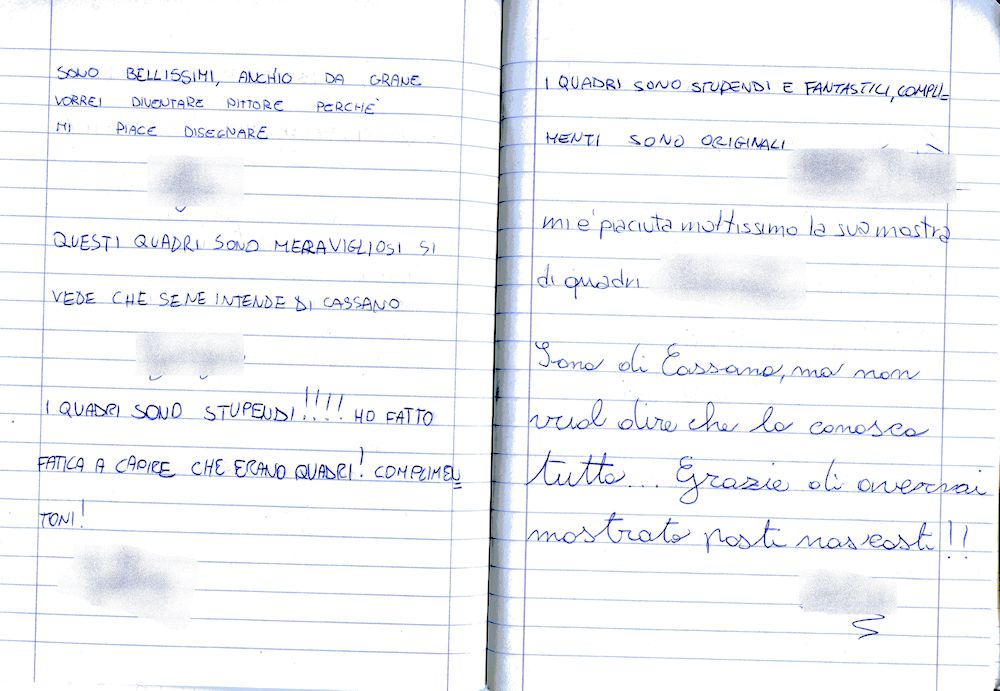 SONO BELLISSIMI, ANCHIO DA GRANE
VORREI DIVENTARE PITTORE PERCHE'
MI PIACE DISEGNARE
QUESTI QUADRI SONO MERAVIGLIOSI SI
VEDE CHE SENE INTENDE DI CASSANO
I QUADRI SONO STUPENDI!!!! HO FATTO
FATICA A CAPIRE CHE ERANO QUADRI! COMPLIMEN
TONI!
I QUADRI SONO STUPENDI E FANTASTICI, COMPLI=
MENTI SONO ORIGINALI
mi è piaciuta moltissimo la sua mostra
di quadri
Sono di Cassano, ma non
vuol dire che lo conosca
tutto... Grazie di avermi
mostrato posti nascosti!!